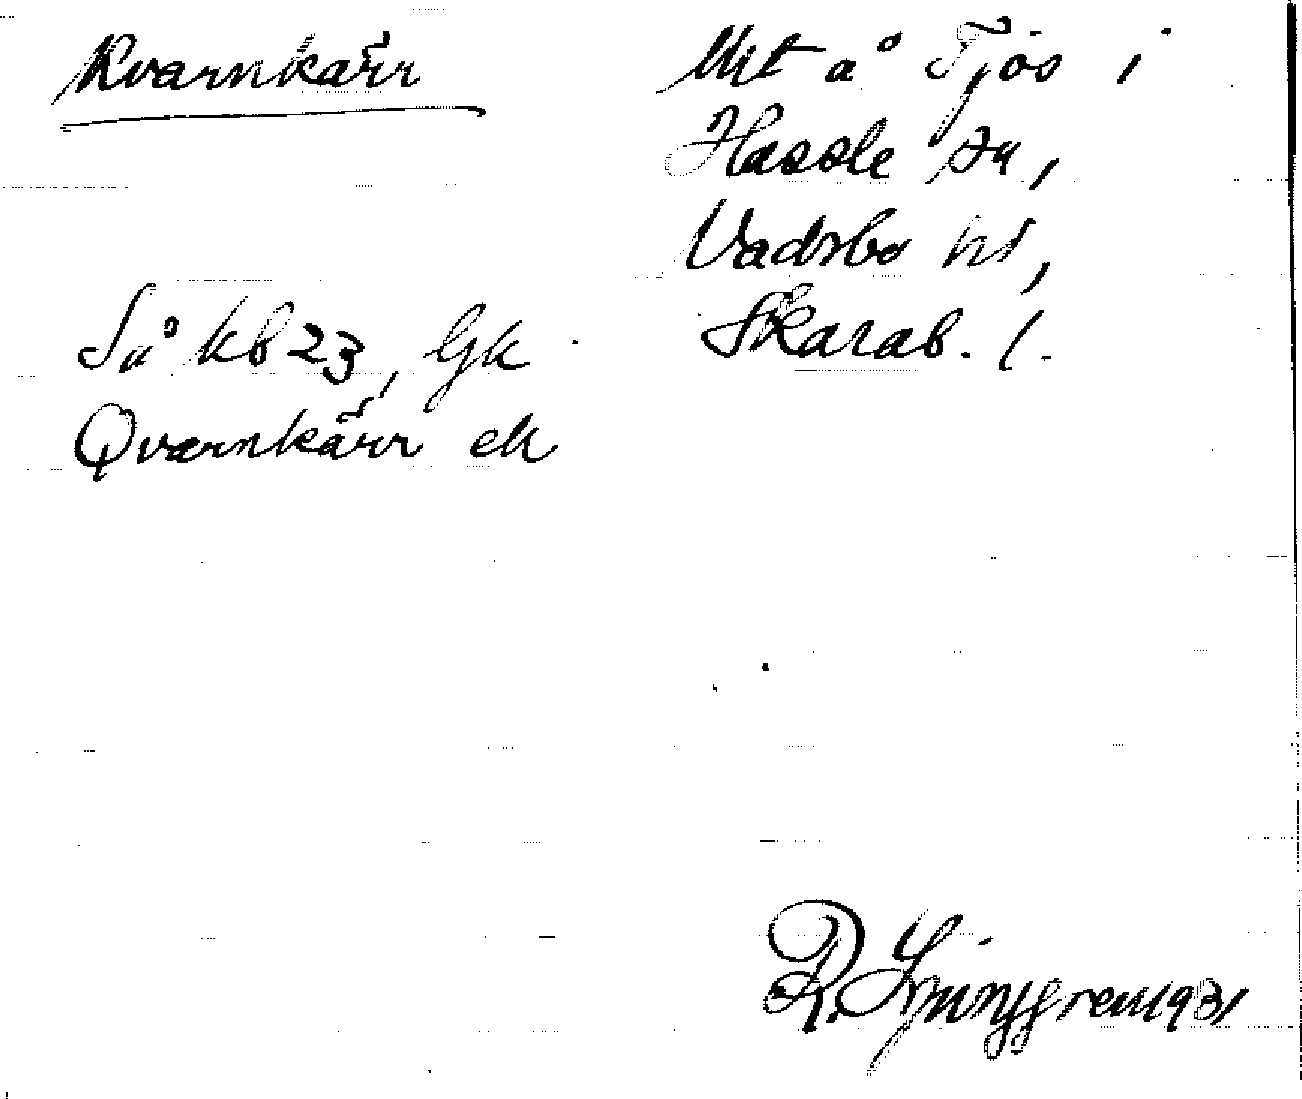 Kvarnkärr
Så kb 23, Gk
Qvarnkärr ek
Utit å Tjos i
Hassle sn,
Vadsbo hd,
Skarab. l.
R. Ljunggren 1931